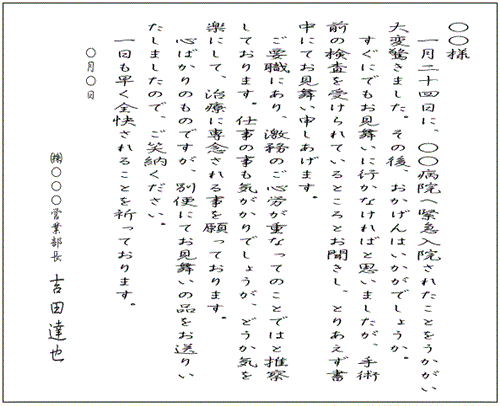 〇〇様
一月二十四日に、〇〇病院へ緊急入院されたことをうかがい
大変驚きました。その後、おかげんはいかがでしょうか。
すぐにでもお見舞いに行かなければと思いましたが、手術
前の検査を受けられているところとお聞きし、とりあえず書
中にてお見舞い申しあげます。
ご要職にあり、激務のご心労が重なってのことではと推察
しております。仕事の事も気がかりでしょうが、どうか気を
楽にして、治療に専念される事を願っております。
心ばかりのものですが、別便にてお見舞いの品をお送りい
たしましたので、ご笑納ください。
一日も早く全快されることを祈っております。
〇月〇日
㈱〇〇〇営業部長 吉田達也